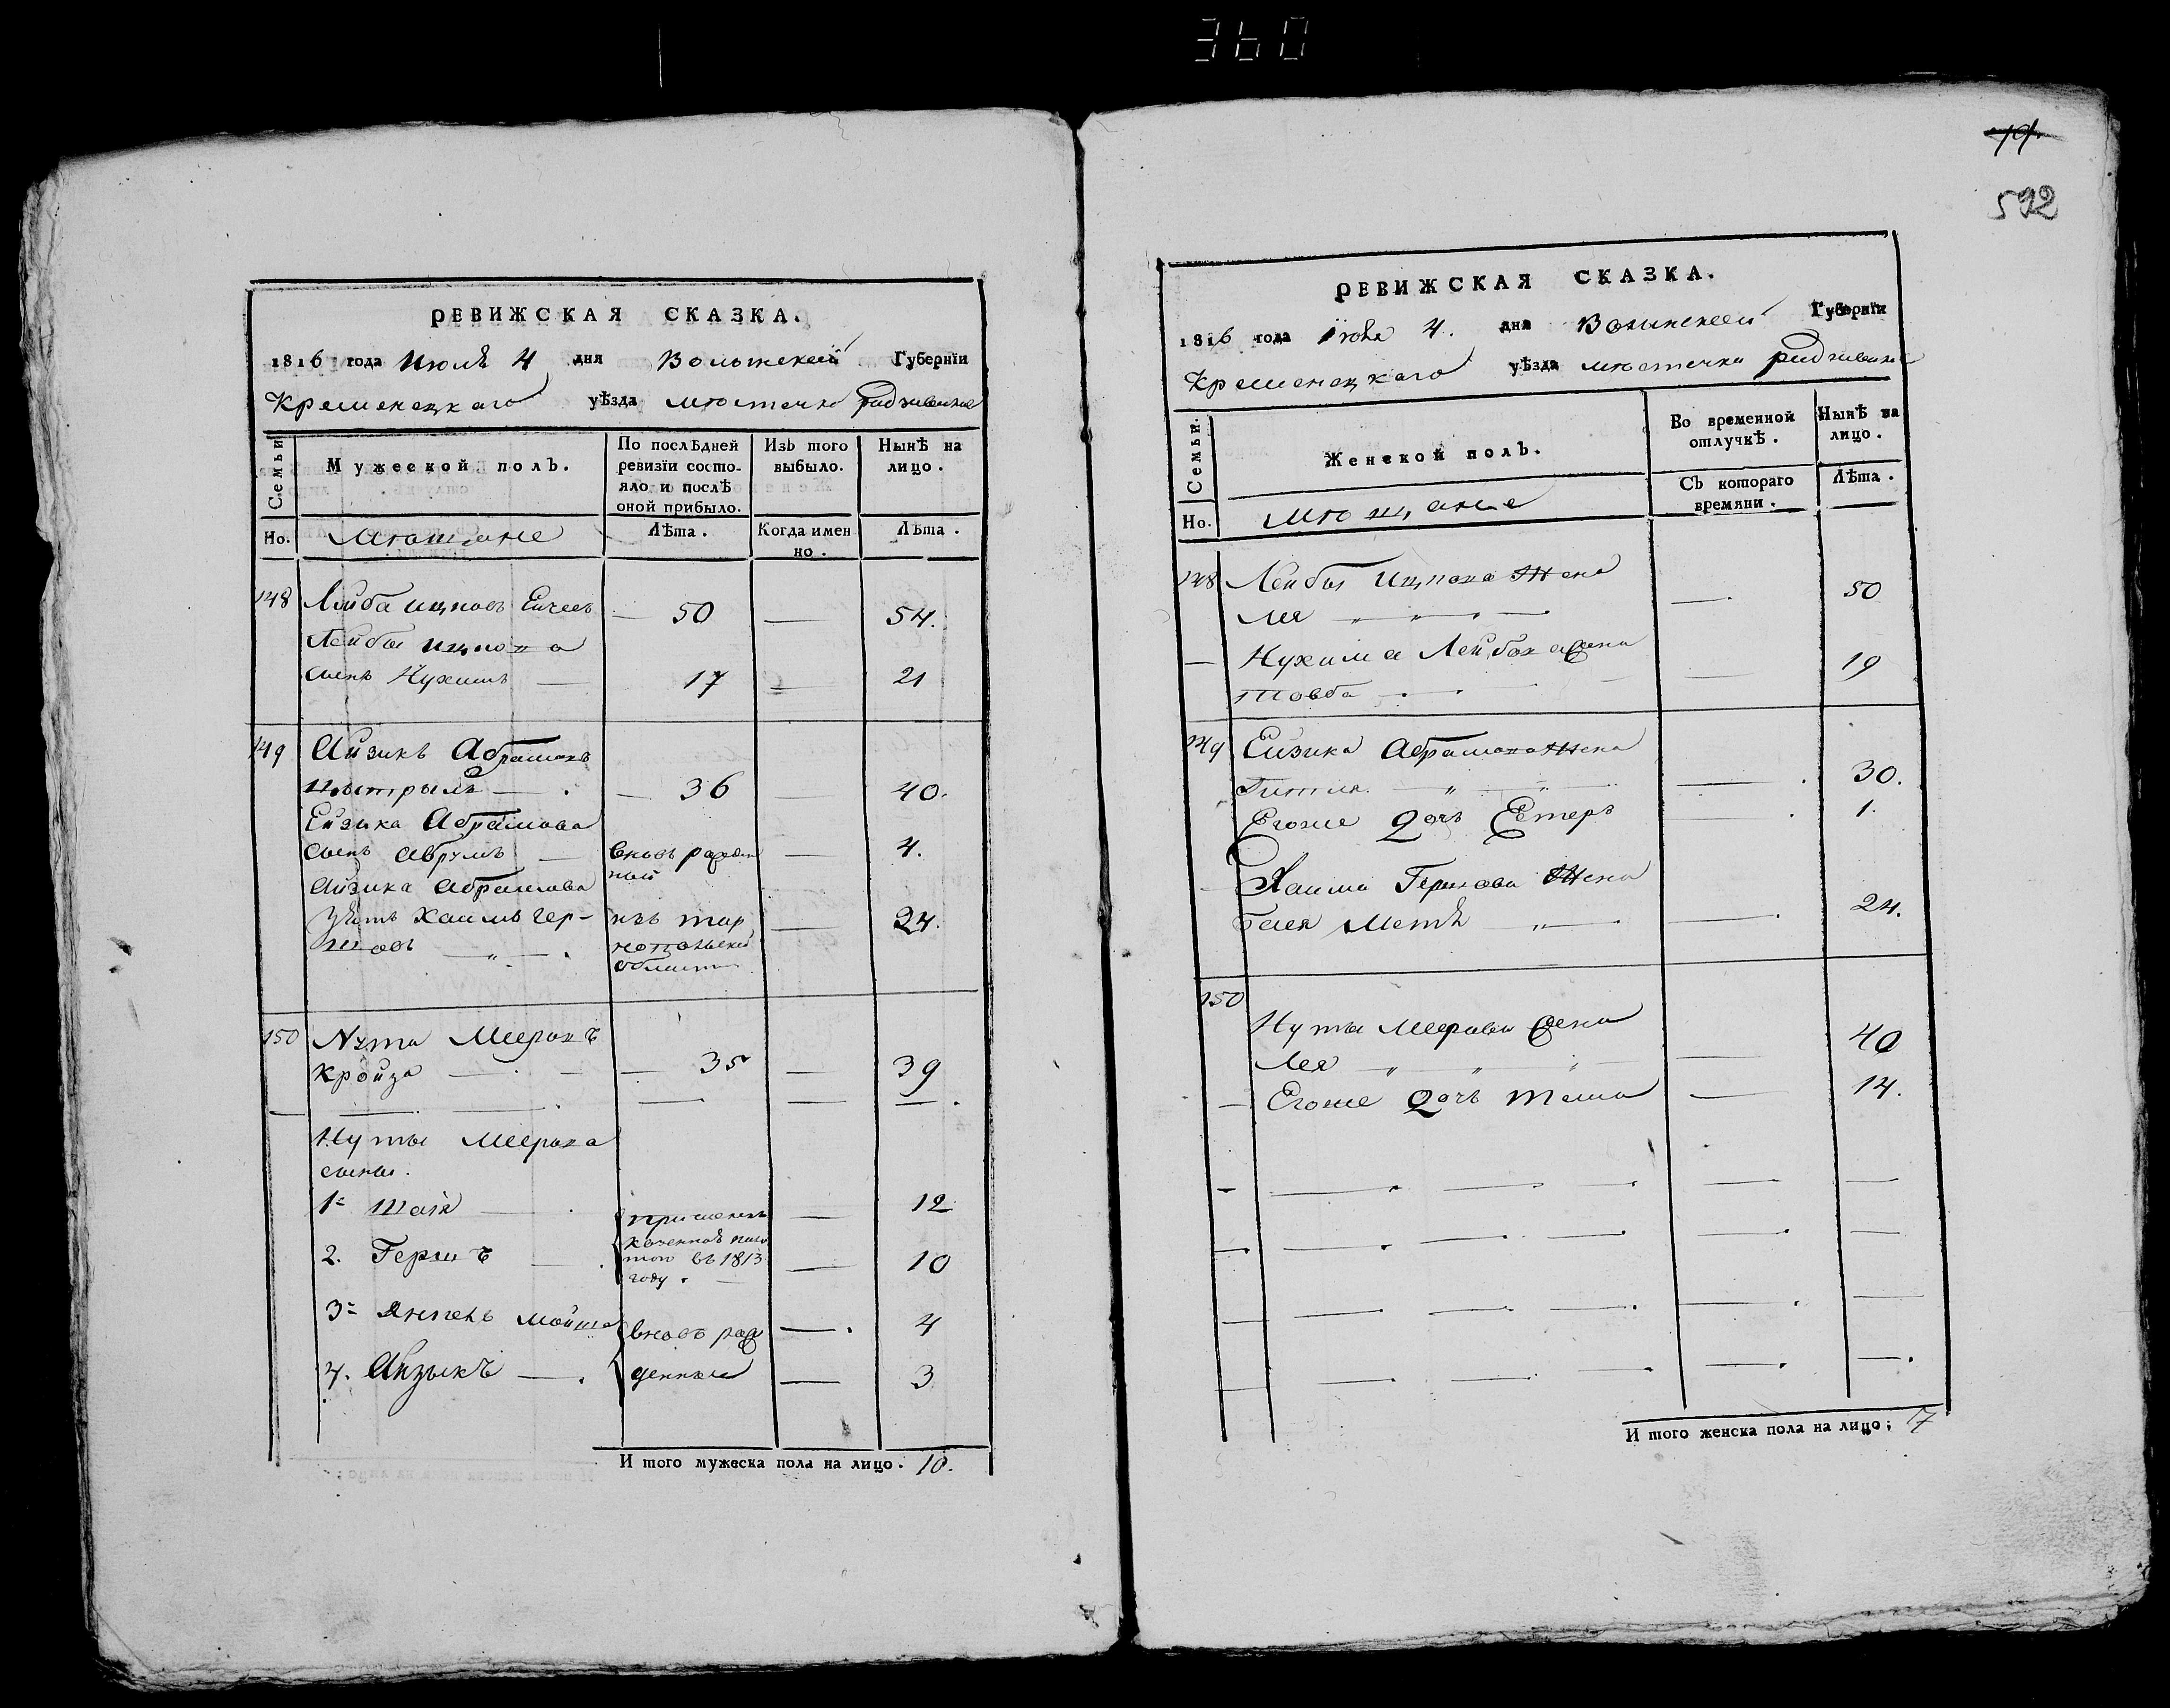 360
592
РЕВИЖСКАЯ СКАЗКА.
1816 года Июля 4 дня Волынской Губернїи
Кременецкаго уѣзда местечка Радзивилова
Семьи
Мужеской полъ.
По послѣдней ревизїи состо-
яло и послѣ
оной прибыло.
Изъ того
выбыло.
Нынѣ на
лицо.
Но.
Мещане
Лѣта.
Когда имен
но.
Лѣта.
148 Лейба Ицковъ — 50 — 54.
Лейбы Ицкова
сынъ Нухимъ — 17 — 21
149 Айзикъ Абрамовъ
— 36 — 40.
Ейзика Абрамова
сынъ Абрумъ — вновь рожден
ный — 4.
Айзика Абрамова
Зять Хаимъ Гер-
шовъ
изъ Тар
нопольской
области — 24.
150 Нута Мееровъ
Кройза — 35 — 39
Нуты Меерова
сыны.
1 Шаія — 12
2. Гершъ — 10
казенной пала
тою въ 1813
году.
3 Мойше — 4
4. Айзыкъ — 3
вновь рож
денные
И того мужеска пола на лицо. 10.
РЕВИЖСКАЯ СКАЗКА.
1816 года Іюля 4. дня Волынской Губернїи
Кременецкаго уѣзда местечка Радзивилова
Семьи.
Женской полъ.
Во временной
отлучкѣ.
Нынѣ на
лицо.
Но.
Мещане
Съ котораго
времяни.
Лѣта.
148 Лейбы Ицкова Жена
Лея — 50
Нухима Лейбова жена
Товба — 19
149 Ейзика Абрамова Жена
Гитля — 30.
Егоже Дочь Естеръ — 1.
Хаима Гершова Жена
Бейля — 24.
150
Нуты Меерова жена
Лея — 40
Егоже Дочь — 14.
И того женска пола на лицо; 7